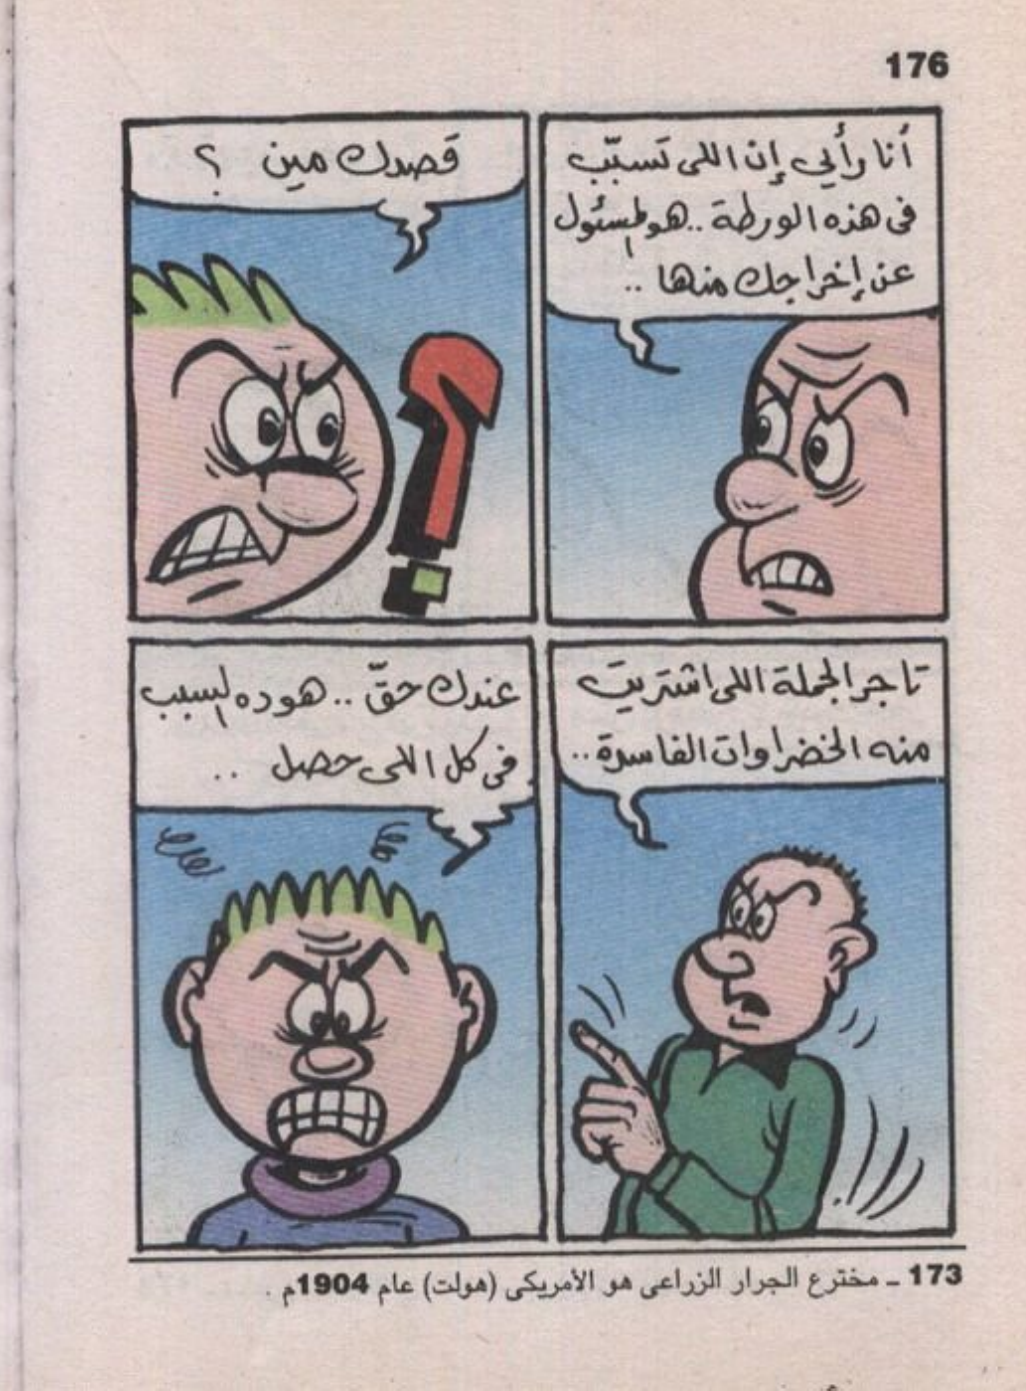 176
أنا رأيي إن اللى تسبّب
فى هذه الورطة .. هو المسئول
عن إخراجك منها ..
قصدك مين ؟
تاجر الجملة اللى اشتريت
منه الخضراوات الفاسدة ..
عندك حقّ .. هو ده السبب
فى كل اللى حصل ..
173 ــ مخترع الجرار الزراعى هو الأمريكى (هولت) عام 1904م .